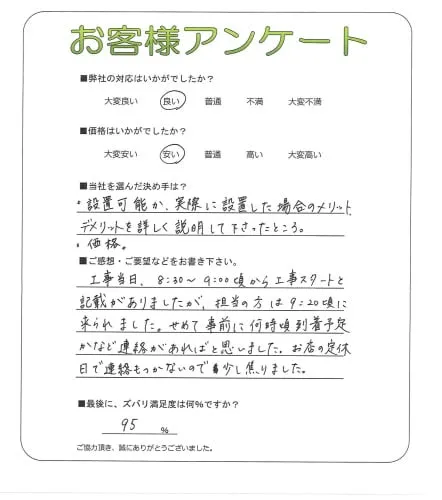 お客様アンケート
■弊社の対応はいかがでしたか?
大変良い 良い 普通 不満 大変不満
■価格はいかがでしたか?
大変安い 安い 普通 高い 大変高い
■当社を選んだ決め手は?
・設置可能か、実際に設置した場合のメリット、
デメリットを詳しく説明して下さったところ。
・価格。
■ご感想・ご要望などをお書き下さい。
工事当日、8:30〜9:00頃から工事スタートと
記載がありましたが、担当の方は9:20頃に
来られました。せめて事前に何時頃到着予定
かなど連絡があればと思いました。お店の定休
日で連絡もつかないので少し焦りました。
■最後に、ズバリ満足度は何%ですか?
95 %
ご協力頂き、誠にありがとうございました。